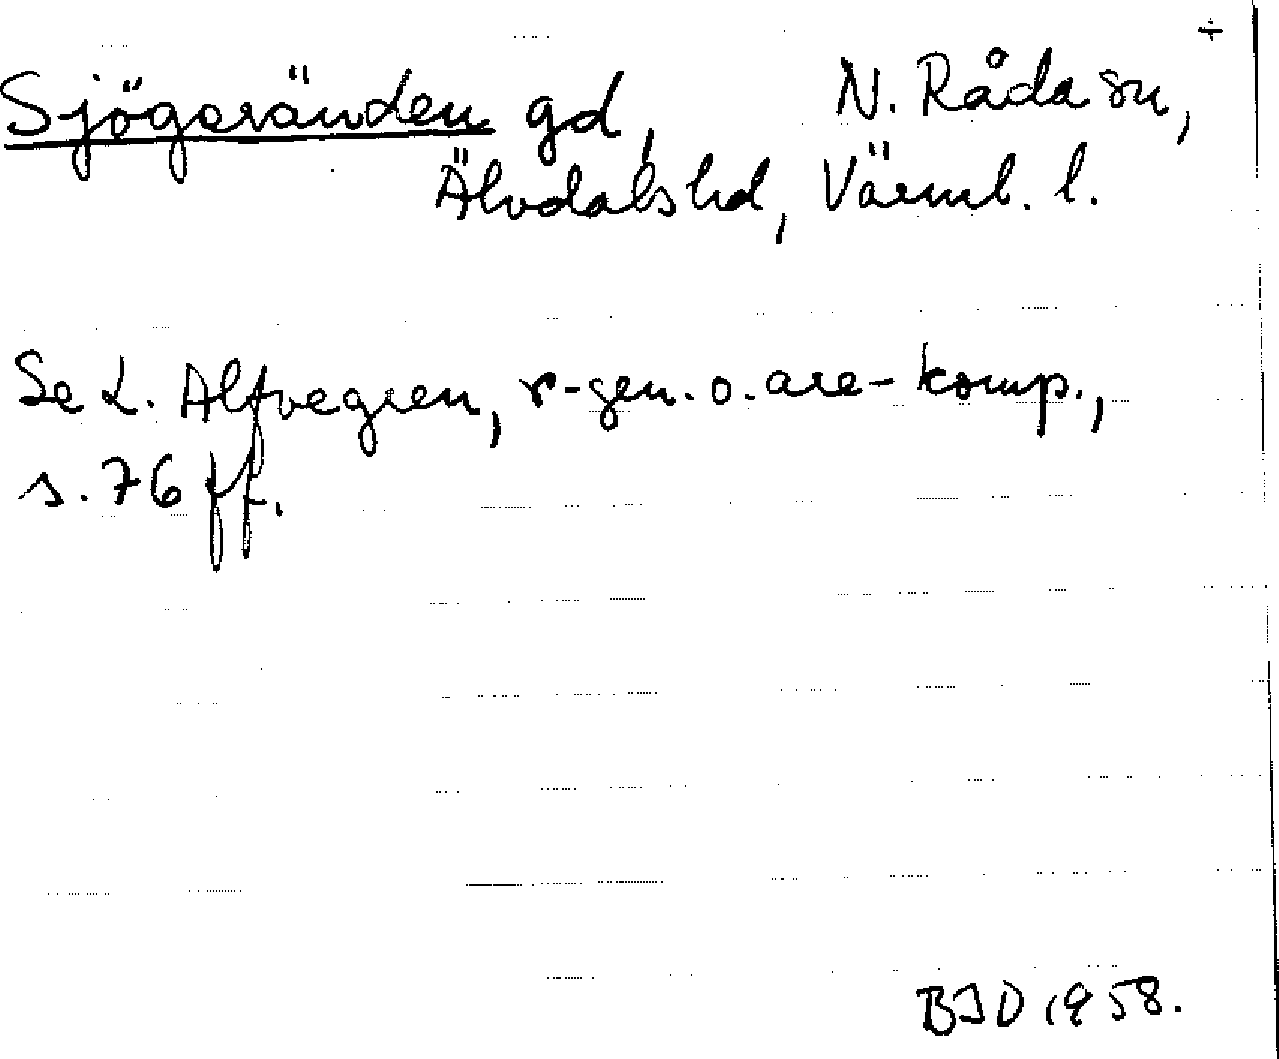 ÷
Sjögeränden gd, N. Råda sn,
Älvdals hd, Värml. l.
Se L. Alfvegren, r-gen. o. are-komp.,
s. 76 ff.
BJD 1958.